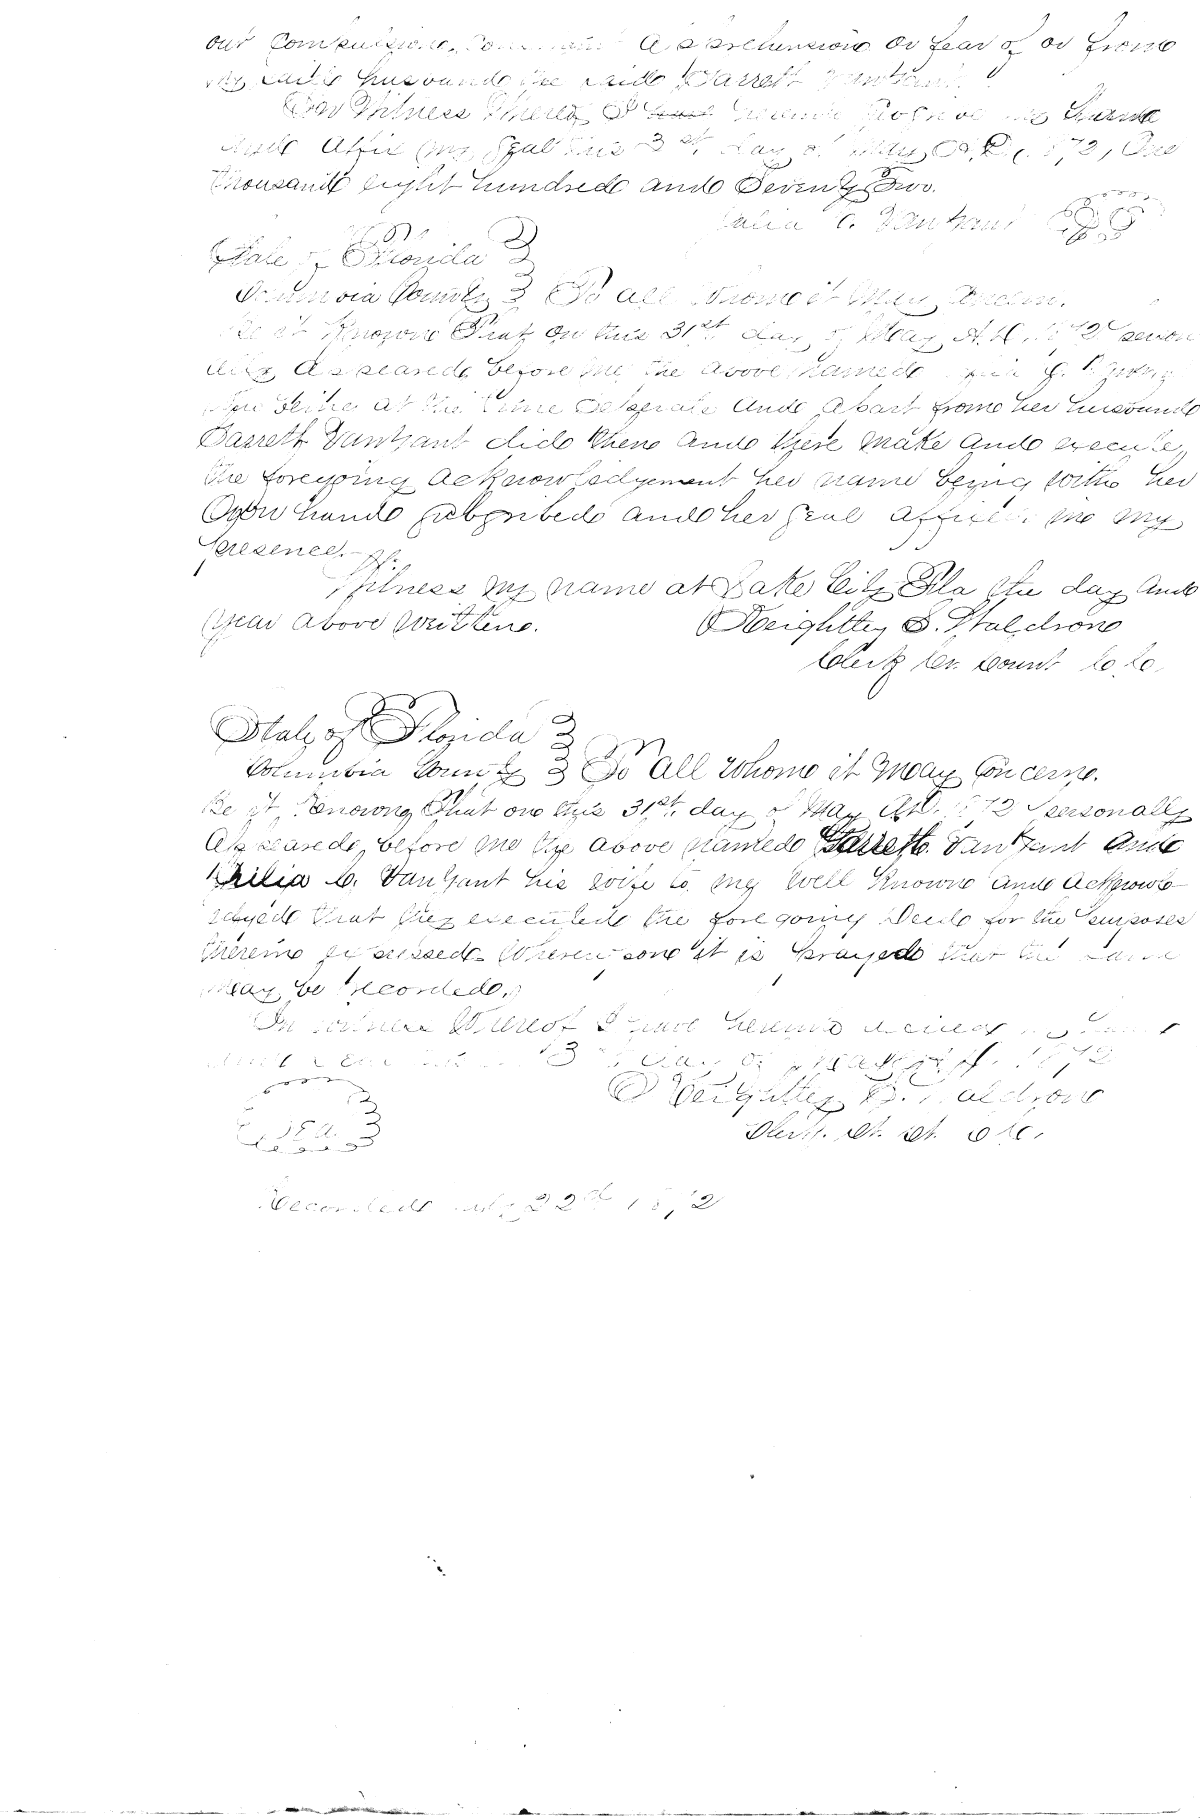 our Compulsion, Constraint Apprehension or fear of or from
my said husband the said Garrett VanZant.
In Witness Whereof I hereunto subscribe my name
and affix my Seal this 31st day of May A.D. 1872, One
thousand eight hundred and Seventy Two.
C. VanZant
State of Florida }
Columbia County } To all Whome it May Concern.
Be it Known That on this 31st day of May A.D. 1872 person
ally appeared before me the above named
being at the time Seperate and apart from her husband
Garrett VanZant did then and there make and execute
the foregoing acknowledgement her name being with her
Own hand subscribed and her seal affixed in my
presence.
Witness my name at Lake City Fla the day and
year above written.
Keightley S. Waldron
Clerk Cir. Court C. C.
State of Florida }
Columbia County } To all Whome it May Concern.
Be it Known That on this 31st day of May A.D. 1872 personally
Appeared before me the above named Garrett VanZant and
C. VanZant his wife to me well known and acknowl
edged that they executed the foregoing Deed for the purposes
therein expressed. Whereupon it is prayed that the same
may be recorded.
In witness Whereof I have hereunto my
and Seal this 31st day of May A.D. 1872
Keightley S. Waldron
Clerk
SEAL
Recorded 22d 1872